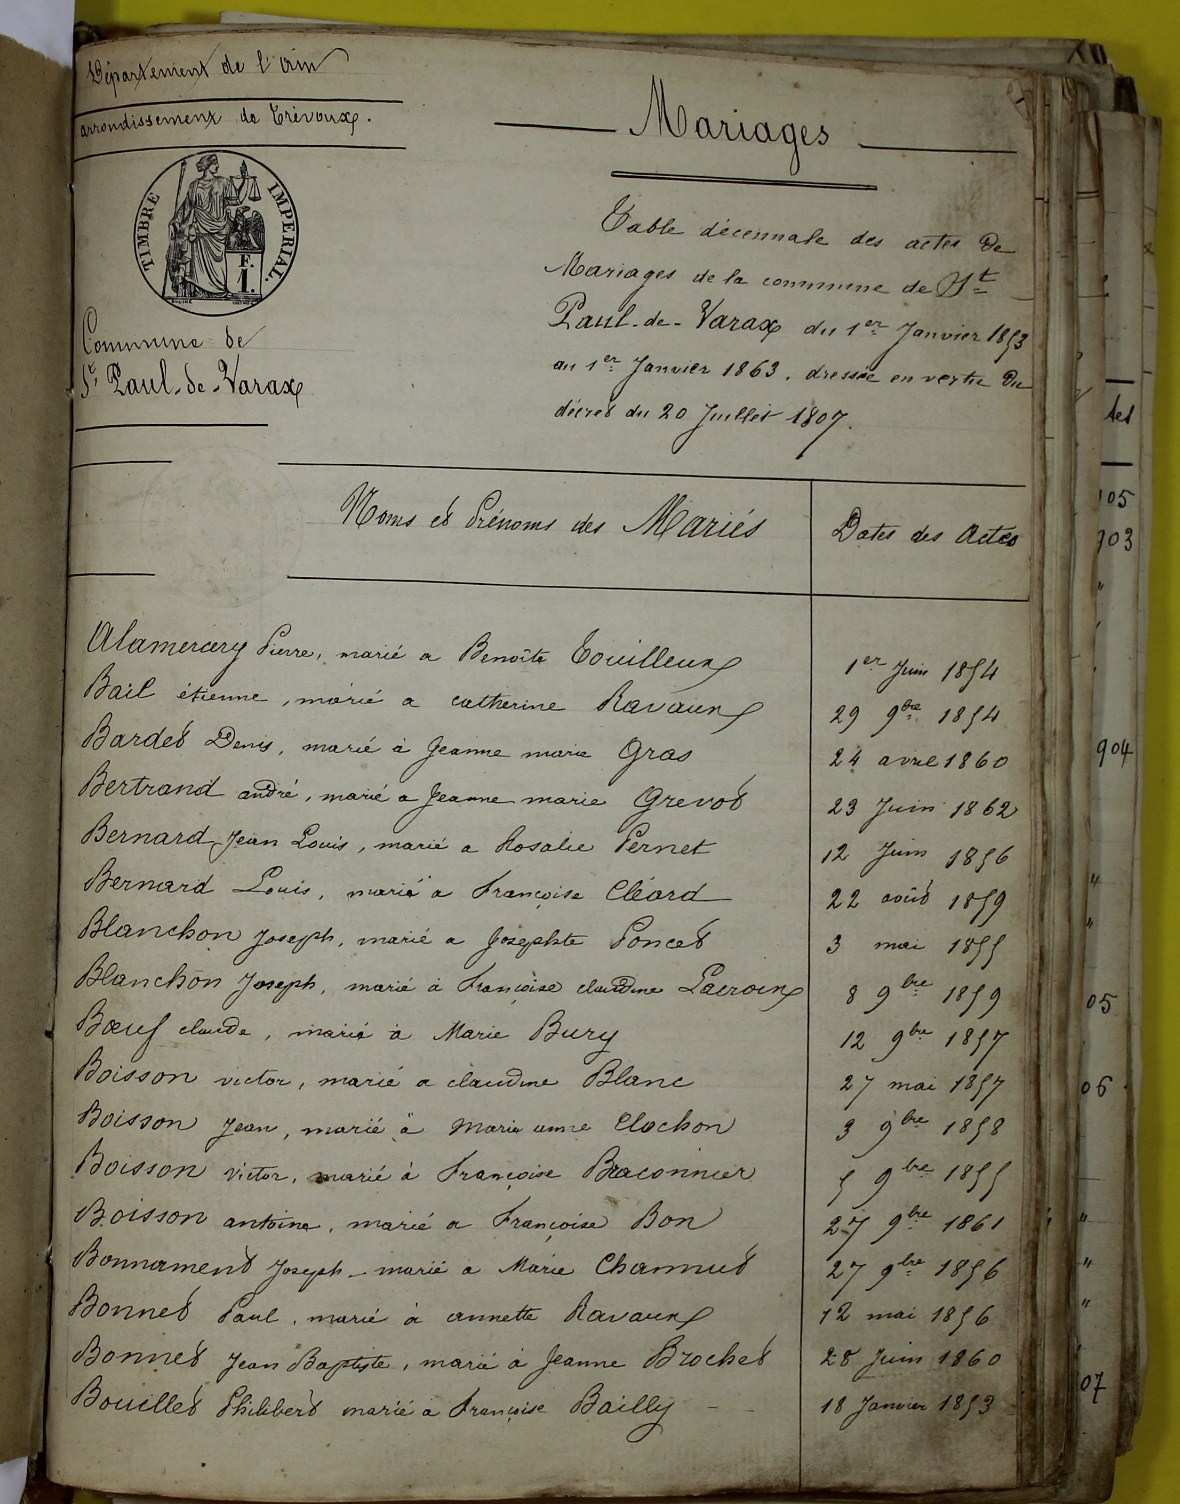 Département de l'Ain
arrondissement de Trévoux.
TIMBRE IMPERIAL.
F.
1.
Commune de
St Paul-de-Varax
Mariages
Table décennale des actes de
Mariages de la commune de St
Paul-de-Varax du 1er Janvier 1853
au 1er Janvier 1863, dressée en vertu du
décret du 20 Juillet 1807.
Noms et Prénoms des Mariés Dates des Actes
Alamercery Pierre, marié a Benoîte Touilleux 1er Juin 1854
Bail étienne, marié a catherine Ravaux 29 9bre 1854
Bardet Denis, marié à Jeanne marie Gras 24 avril 1860
Bertrand andré, marié a Jeanne marie Grevot 23 Juin 1862
Bernard Jean Louis, marié a Rosalie Pernet 12 Juin 1856
Bernard Louis, marié a Françoise Cléard 22 août 1859
Blanchon Joseph, marié a Josephte Poncet 3 mai 1855
Blanchon Joseph, marié à Françoise claudine Lacroix 8 9bre 1859
Bœuf claude, marié à Marie Bury 12 9bre 1857
Boisson victor, marié a claudine Blanc 27 mai 1857
Boisson Jean, marié à Marie anne Clochon 3 9bre 1858
Boisson victor, marié à Françoise Braconnier 5 9bre 1855
Boisson antoine, marié a Françoise Bon 27 9bre 1861
Bonnament Joseph - marié a Marie Channut 27 9bre 1856
Bonnet Paul, marié à annette Ravaux 12 mai 1856
Bonnet Jean Baptiste, marié à Jeanne Brochet 28 Juin 1860
Bouillet Philibert marié a Françoise Bailly 18 Janvier 1853
105
903
904
05
06
07